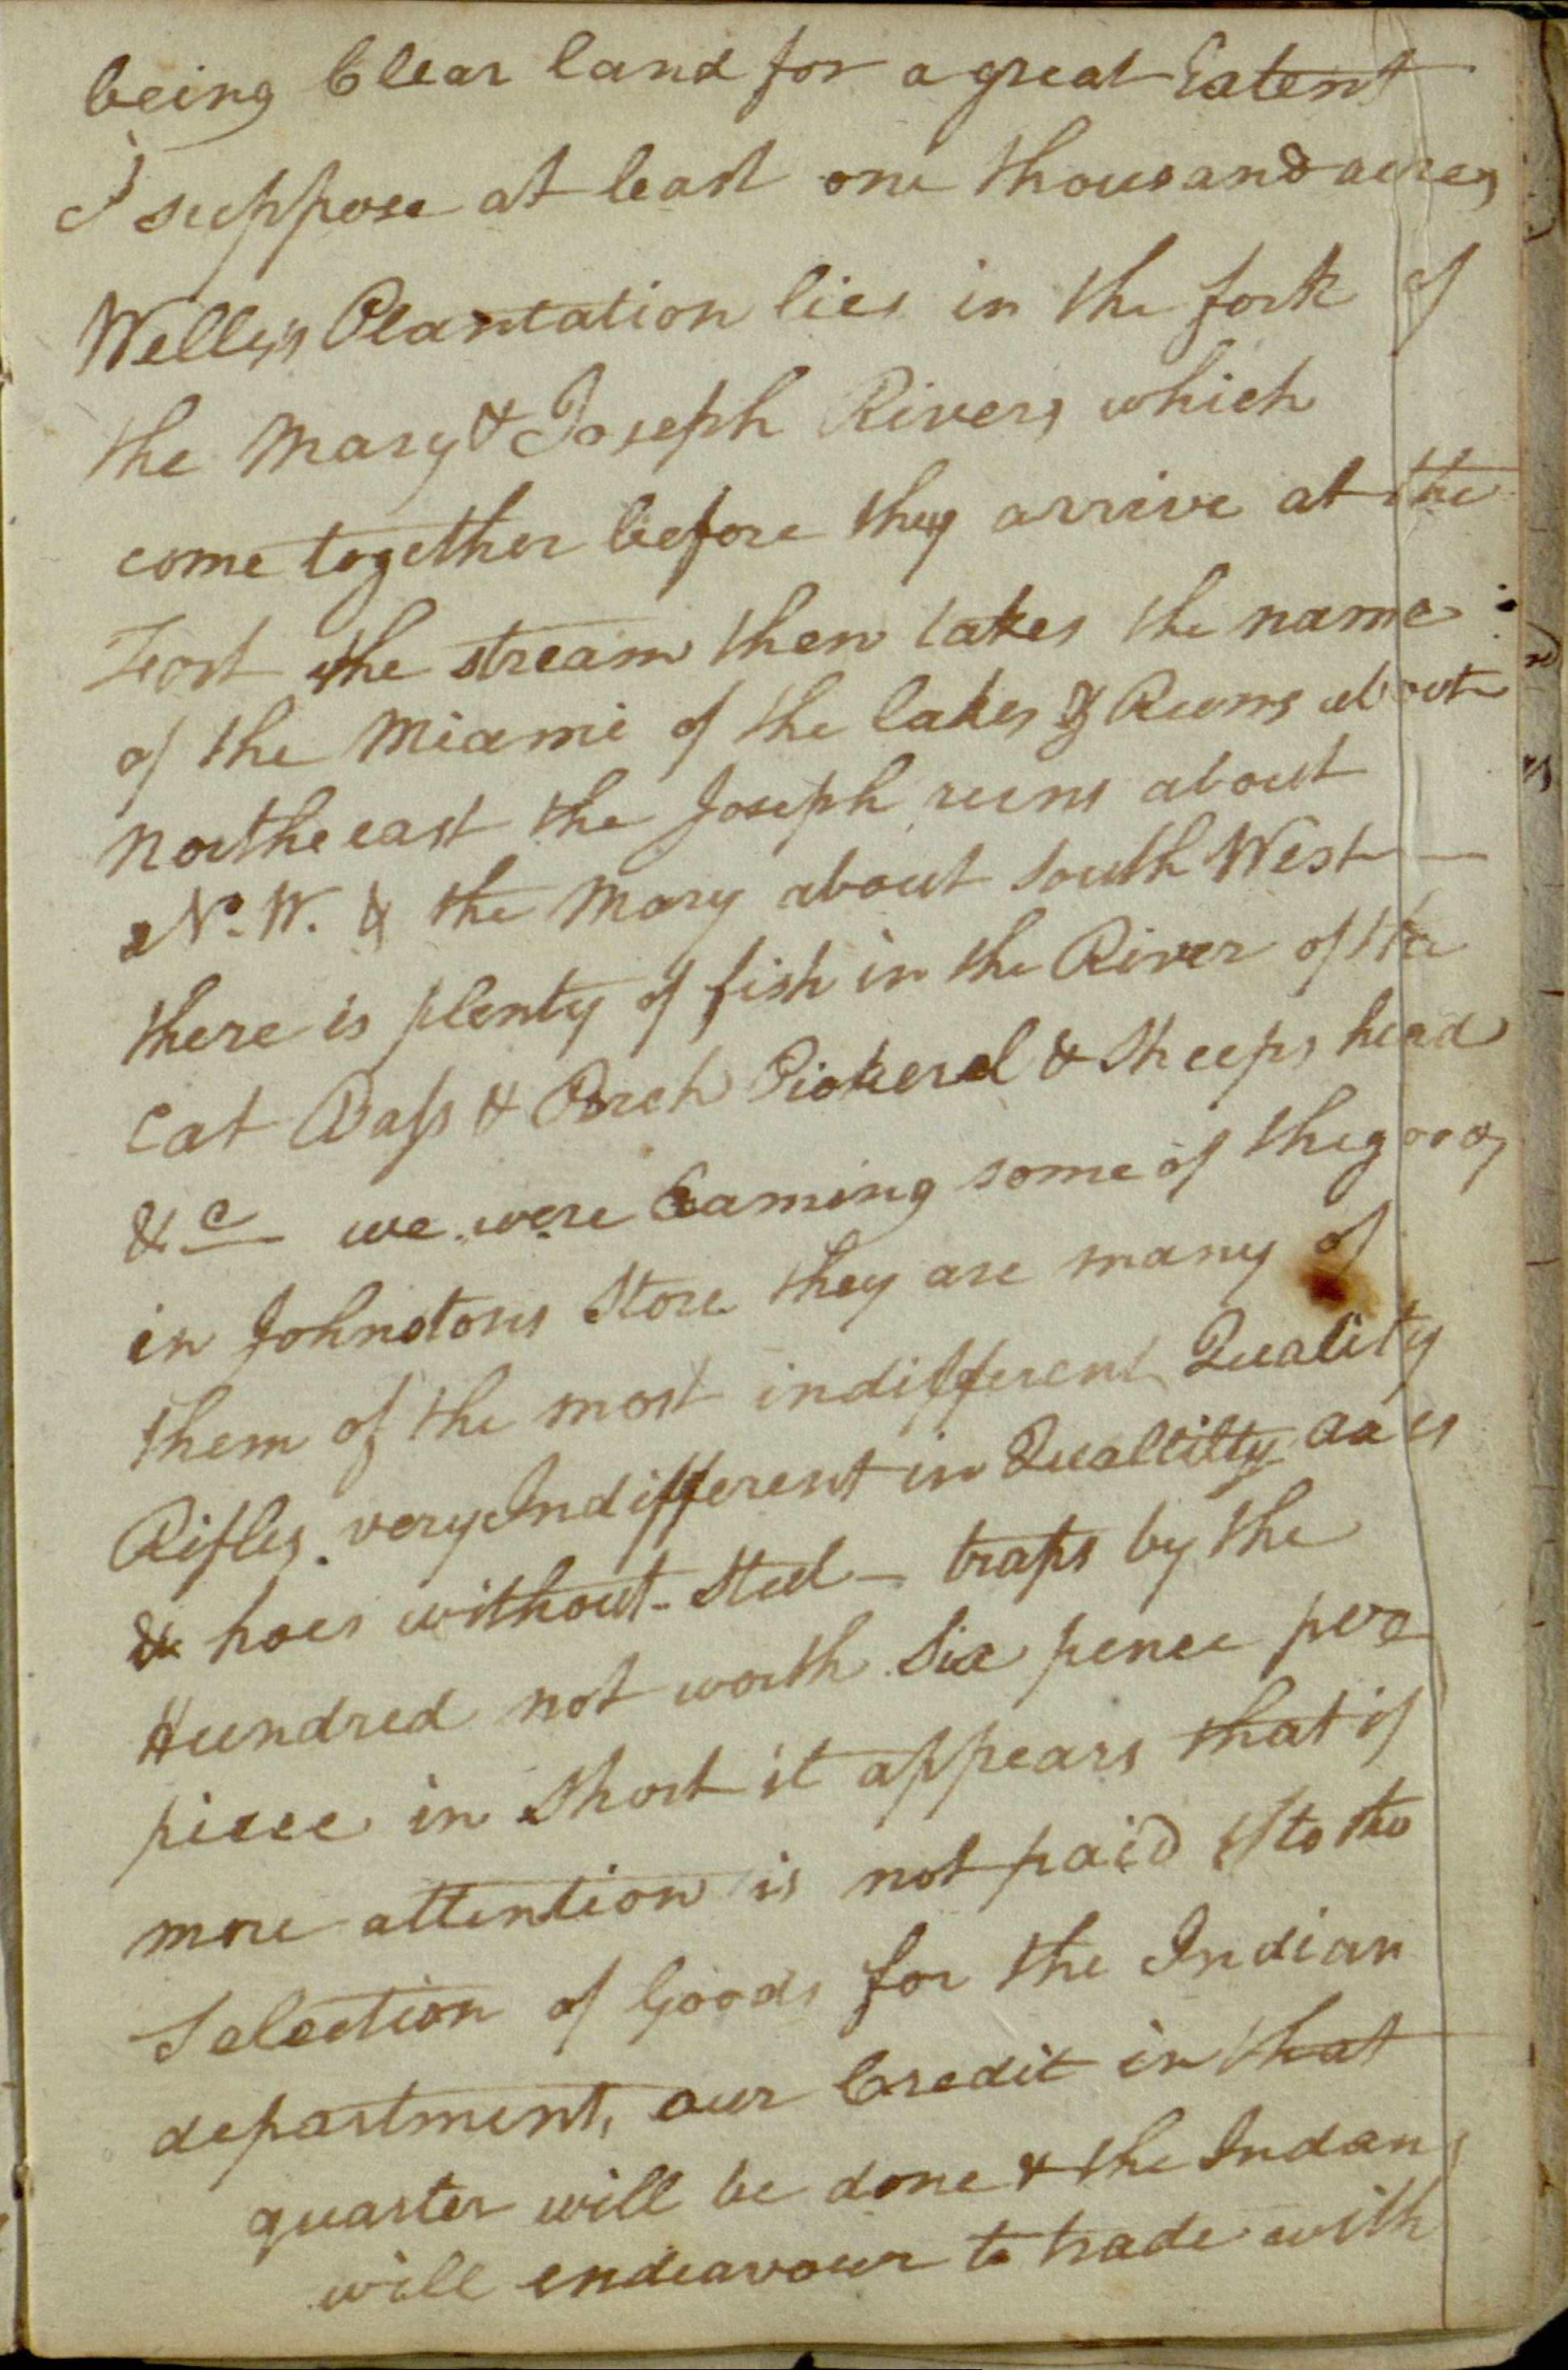 being Clear land for a great Extent
I suppose at least one thousand acres
Wells's Plantation lies in the fork of
the Mary & Joseph Rivers which
come together before they arrive at the
Fort the stream then takes the name
of the Miami of the lakes & Runs about
North east the Joseph runs about
No. W. & the Mary about South West —
there is plenty of fish in the River of the
Cat Bass & Perch Pickerel & Sheeps head
&c we were Examing some of the goods
in Johnstons Store they are many of
them of the most indifferent Quality
Rifles very Indifferent in Quallitty axes
& hoes without Steel — traps by the
Hundred not worth Six pence per
piece in Short it appears that if
more attention is not paid to the
Selection of Goods for the Indian
department, our Credit in that
quarter will be done & the Indans
will endeavour to trade with